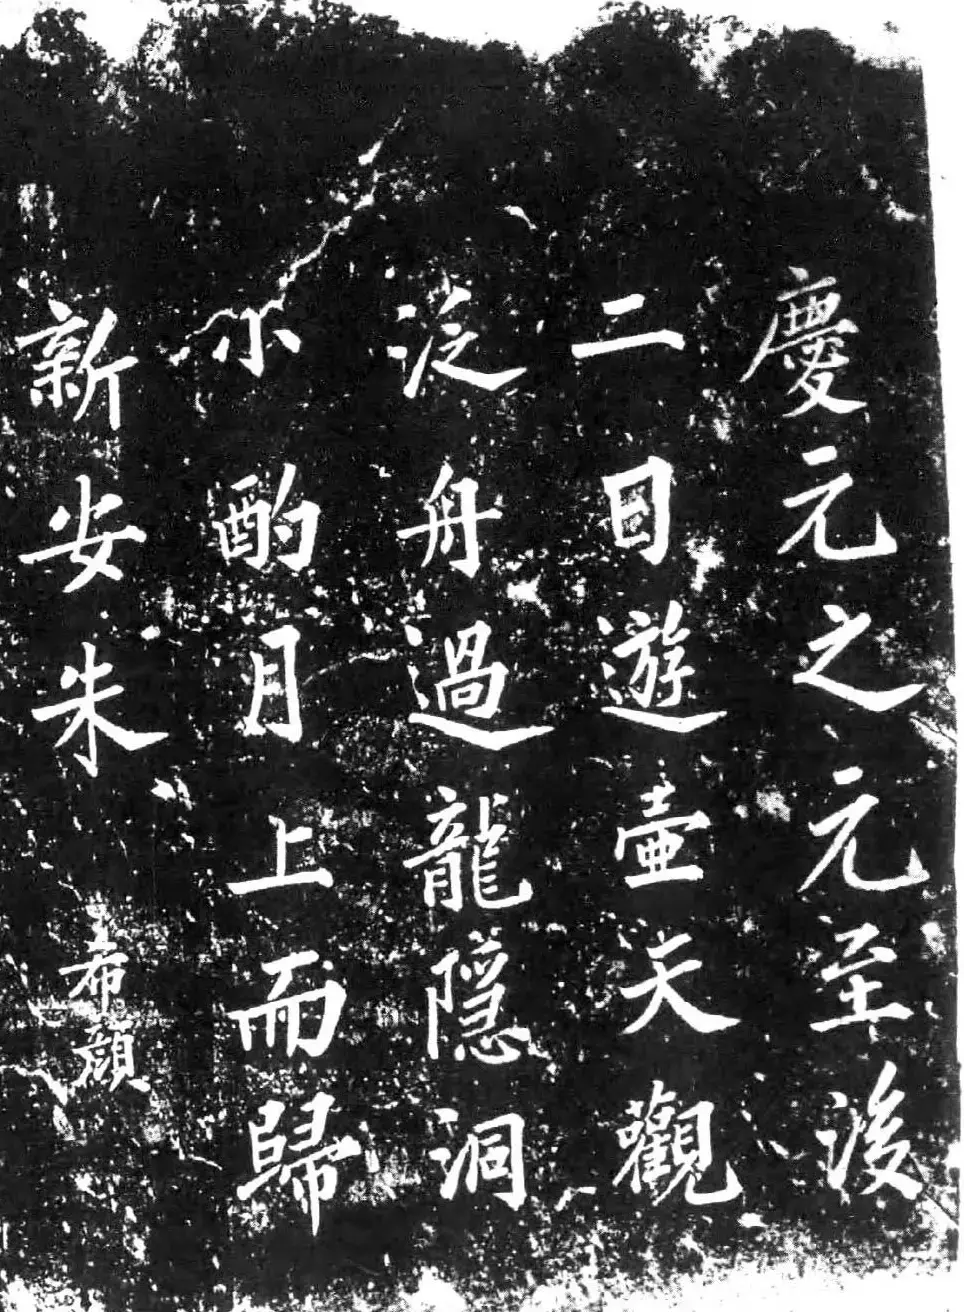 慶元之元至後
二日遊壷天觀
泛舟過龍隱洞
小酌月上而歸
新安朱希顔